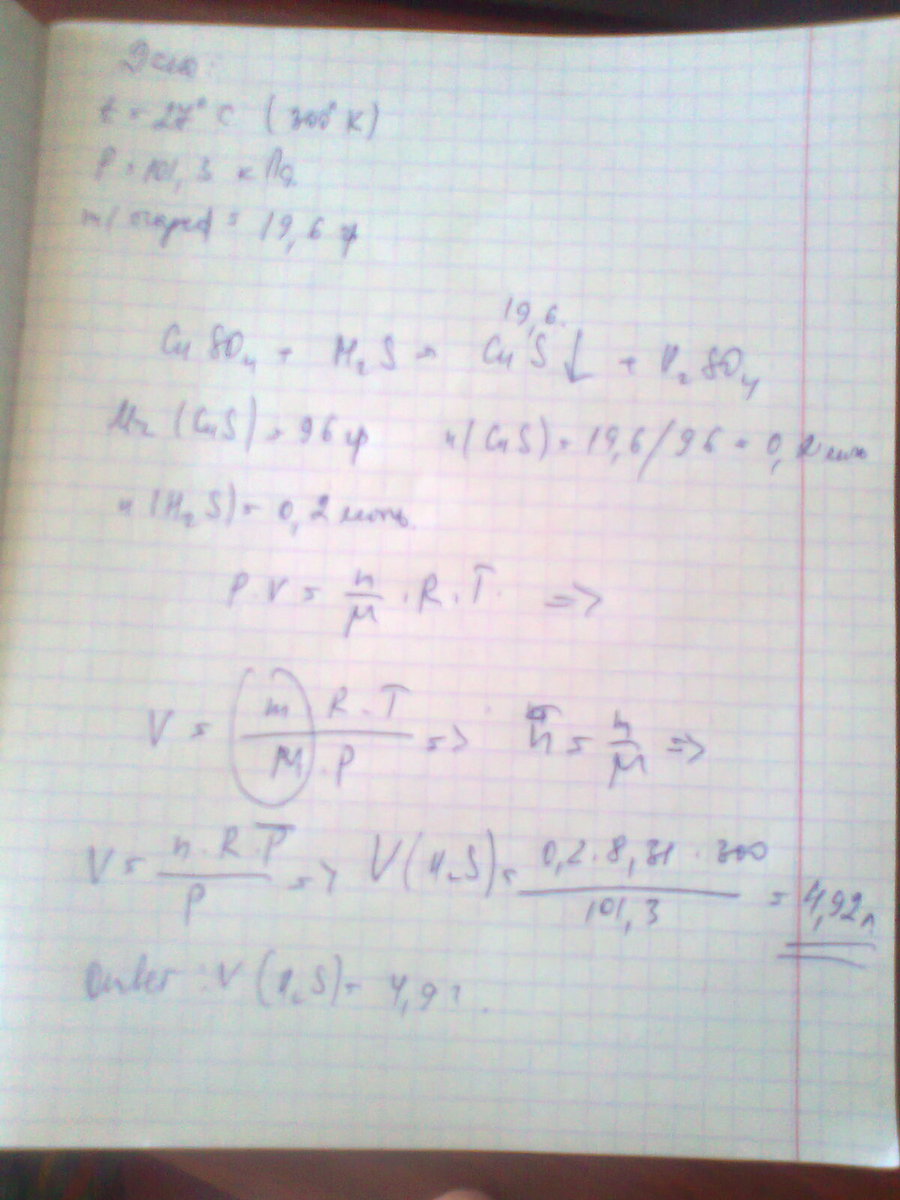 Дано:
t = 27° C (300° K)
P = 101,3 кПа
m( = 19,6 гр
19,6.
CuSO₄ + H₂S = CuS↓ + H₂SO₄
Mr (CuS) = 96 гр n(CuS) = 19,6/96 = 0,2 моль
n (H₂S) = 0,2 моль
P · V = m/M · R · T. =>
V = m R · T / M · P => n = m/M =>
V = n · R · T / P => V(H₂S) = 0,2 · 8,31 · 300 / 101,3 = 4,92 л
Ответ : V (H₂S) = 4,9